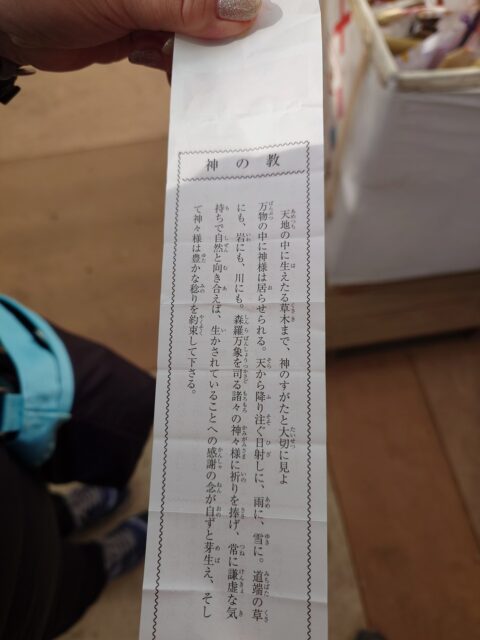 神の教
天地の中に生えたる草木まで、神のすがたと大切に見よ
万物の中に神様は居らせられる。天から降り注ぐ日射しに、雨に、雪に。道端の草
にも、岩にも、川にも。森羅万象を司る諸々の神々様に祈りを捧げ、常に謙虚な気
持ちで自然と向き合えば、生かされていることへの感謝の念が自ずと芽生え、そし
て神々様は豊かな稔りを約束して下さる。